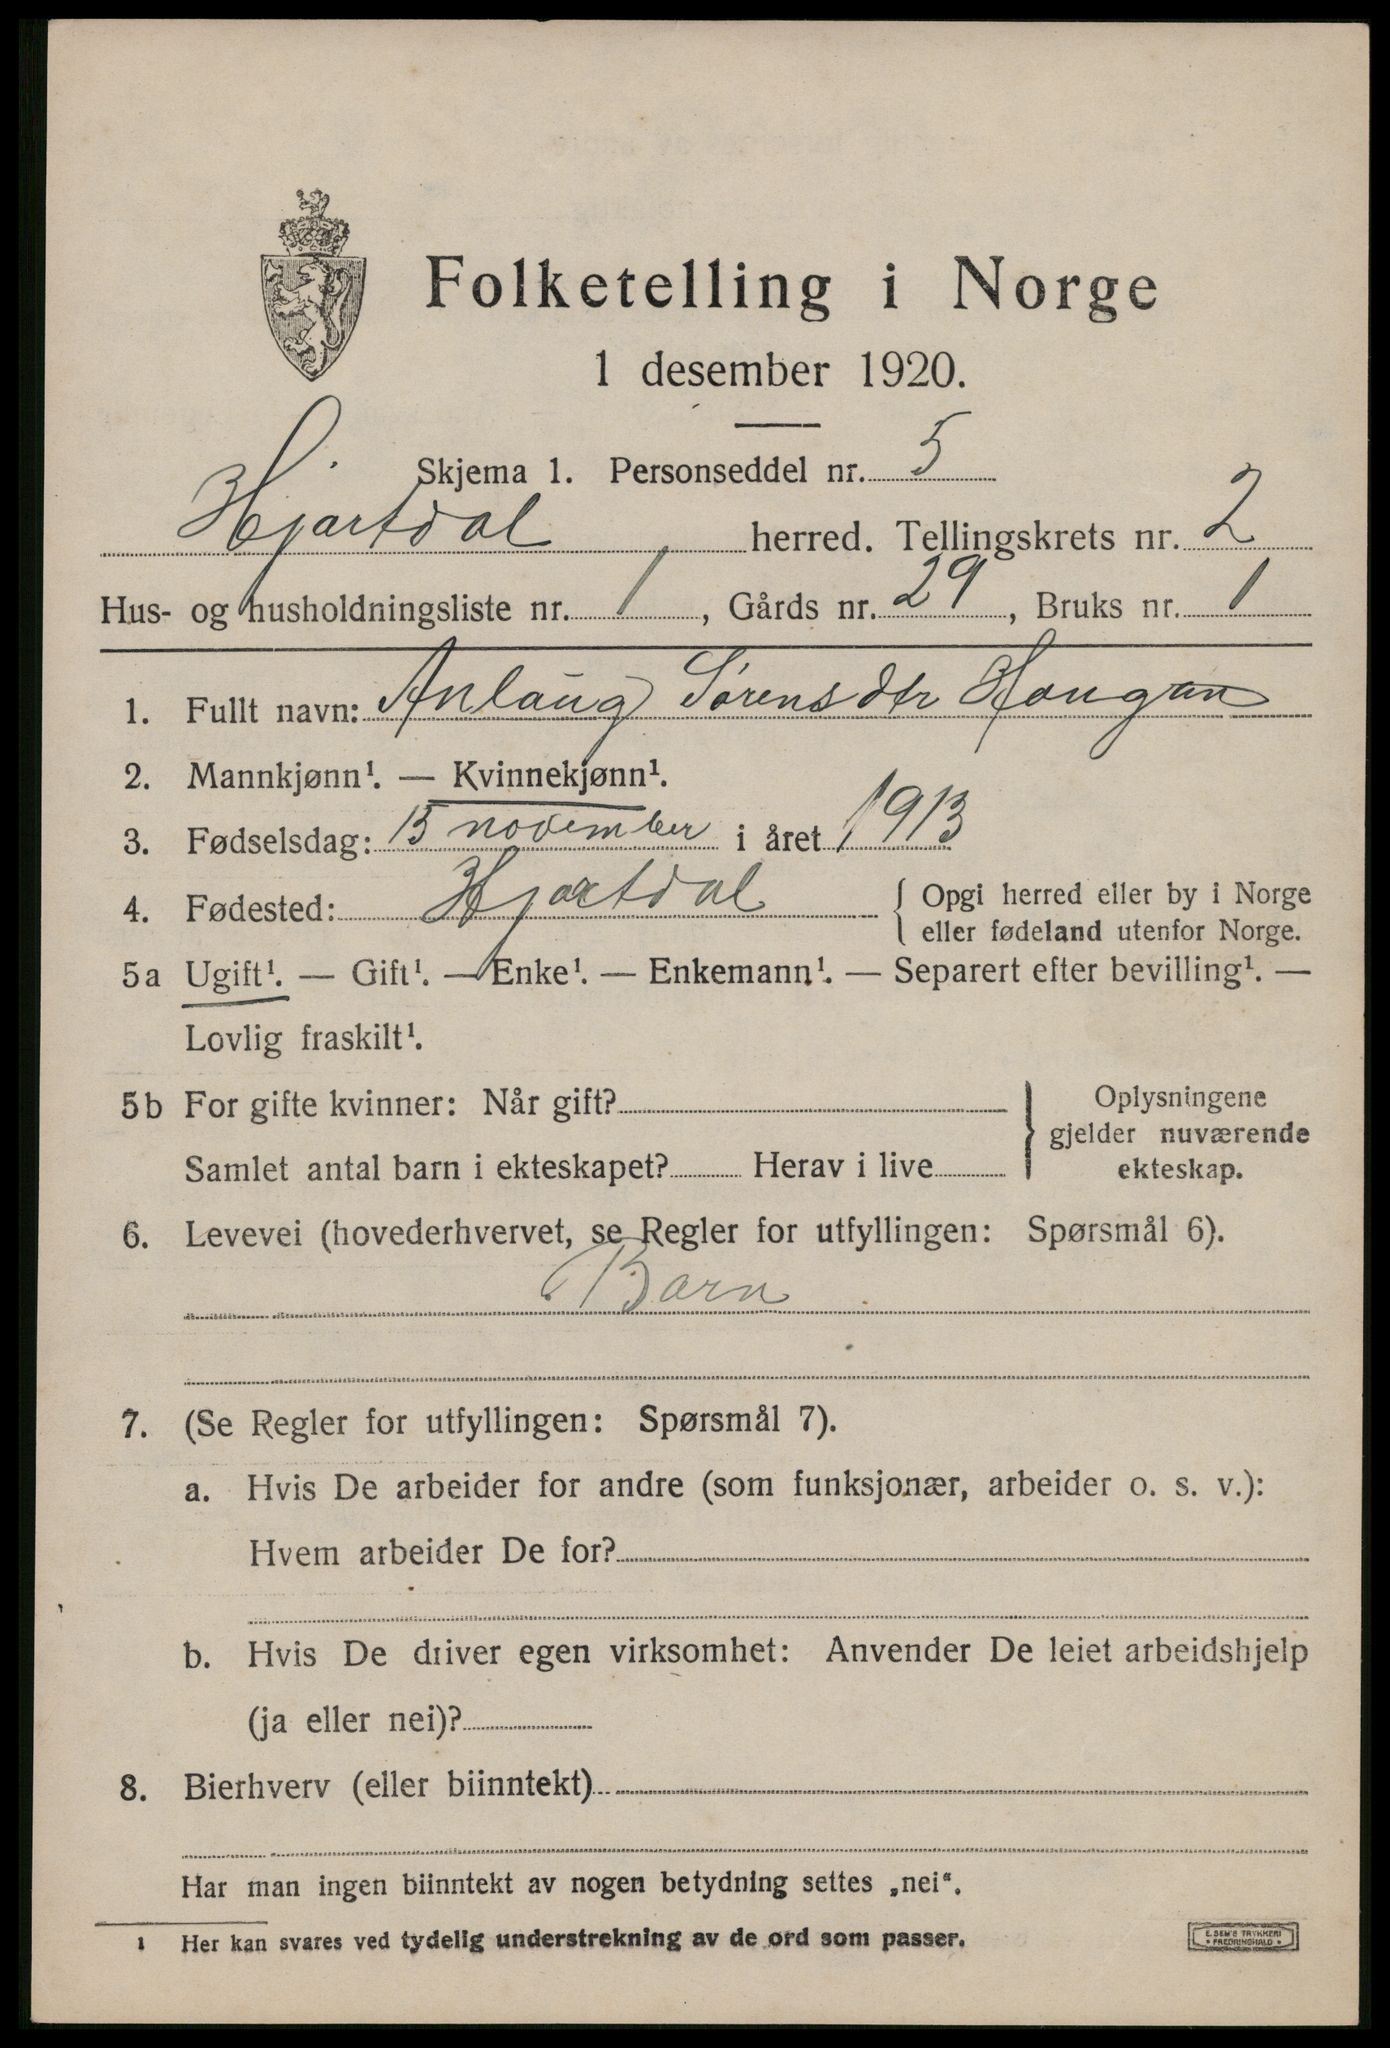 Folketelling i Norge
1 desember 1920.
Skjema 1. Personseddel nr. 5
Hjartdal herred. Tellingskrets nr. 2
Hus- og husholdningsliste nr. 1, Gårds nr. 29, Bruks nr. 1
1. Fullt navn: Anlaug Sørensdtr Haugan
2. Mannkjønn¹. — Kvinnekjønn¹.
3. Fødselsdag: 15 november i året 1913
4. Fødested: Hjartdal { Opgi herred eller by i Norge
eller fødeland utenfor Norge.
5a Ugift¹. — Gift¹. — Enke¹. — Enkemann¹. — Separert efter bevilling¹. —
Lovlig fraskilt¹.
5b For gifte kvinner: Når gift? } Oplysningene
gjelder nuværende
Samlet antal barn i ekteskapet? Herav i live ekteskap.
6. Levevei (hovederhvervet, se Regler for utfyllingen: Spørsmål 6).
Barn
7. (Se Regler for utfyllingen: Spørsmål 7).
a. Hvis De arbeider for andre (som funksjonær, arbeider o. s. v.):
Hvem arbeider De for?
b. Hvis De driver egen virksomhet: Anvender De leiet arbeidshjelp
(ja eller nei)?
8. Bierhverv (eller biinntekt)
Har man ingen biinntekt av nogen betydning settes „nei“.
¹ Her kan svares ved tydelig understrekning av de ord som passer.
E. SEM'S TRYKKERI
• FREDRIKSHALD •